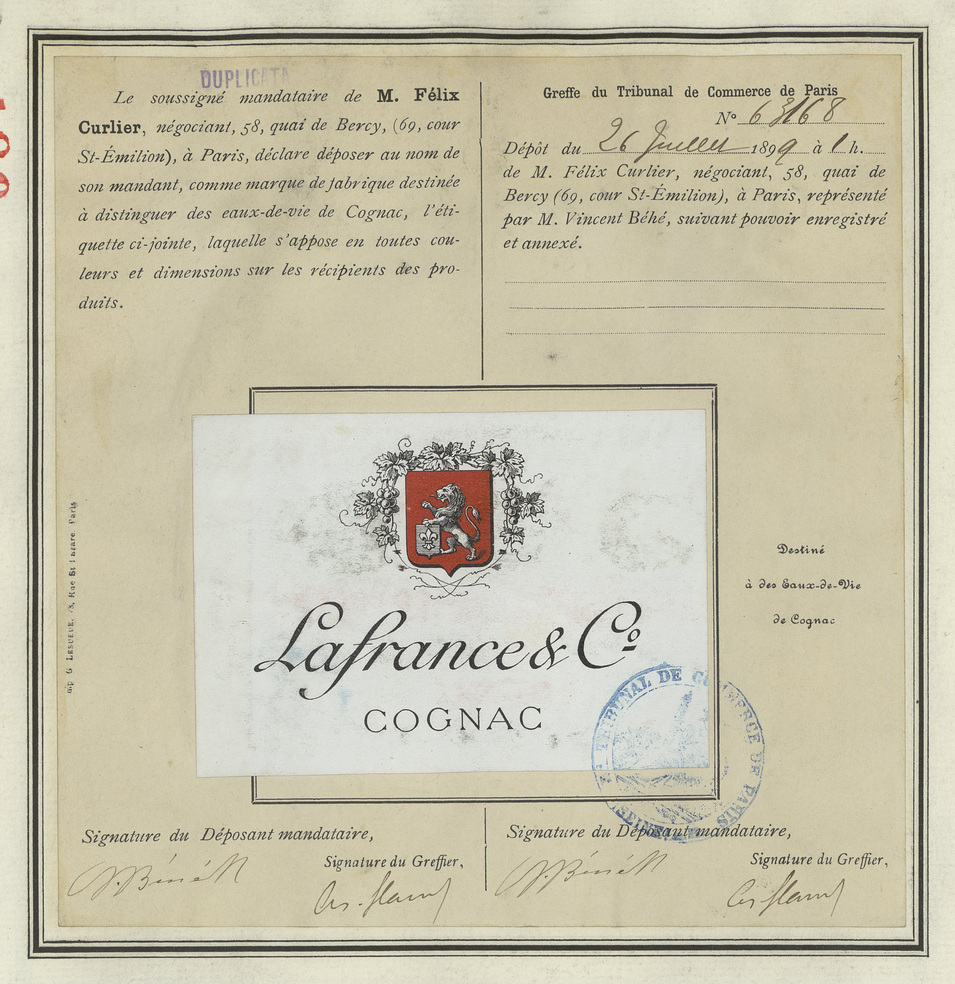 DUPLICATA
Le soussigné mandataire de M. Félix
Curlier, négociant, 58, quai de Bercy, (69, cour
St-Émilion), à Paris, déclare déposer au nom de
son mandant, comme marque de fabrique destinée
à distinguer des eaux-de-vie de Cognac, l'éti-
quette ci-jointe, laquelle s'appose en toutes cou-
leurs et dimensions sur les récipients des pro-
duits.
Greffe du Tribunal de Commerce de Paris
N° 63168
Dépôt du 26 Juillet 1899 à 1 h.
de M. Félix Curlier, négociant, 58, quai de
Bercy (69, cour St-Émilion), à Paris, représenté
par M. Vincent Béhé, suivant pouvoir enregistré
et annexé.
Lafrance & Co
COGNAC
Destiné
à des Eaux-de-Vie
de Cognac
TRIBUNAL DE COMMERCE DE PARIS
Imp G. LESUEUR, Rue St Lazare Paris
Signature du Déposant mandataire,
Signature du Greffier,
Signature du Déposant mandataire,
Signature du Greffier,